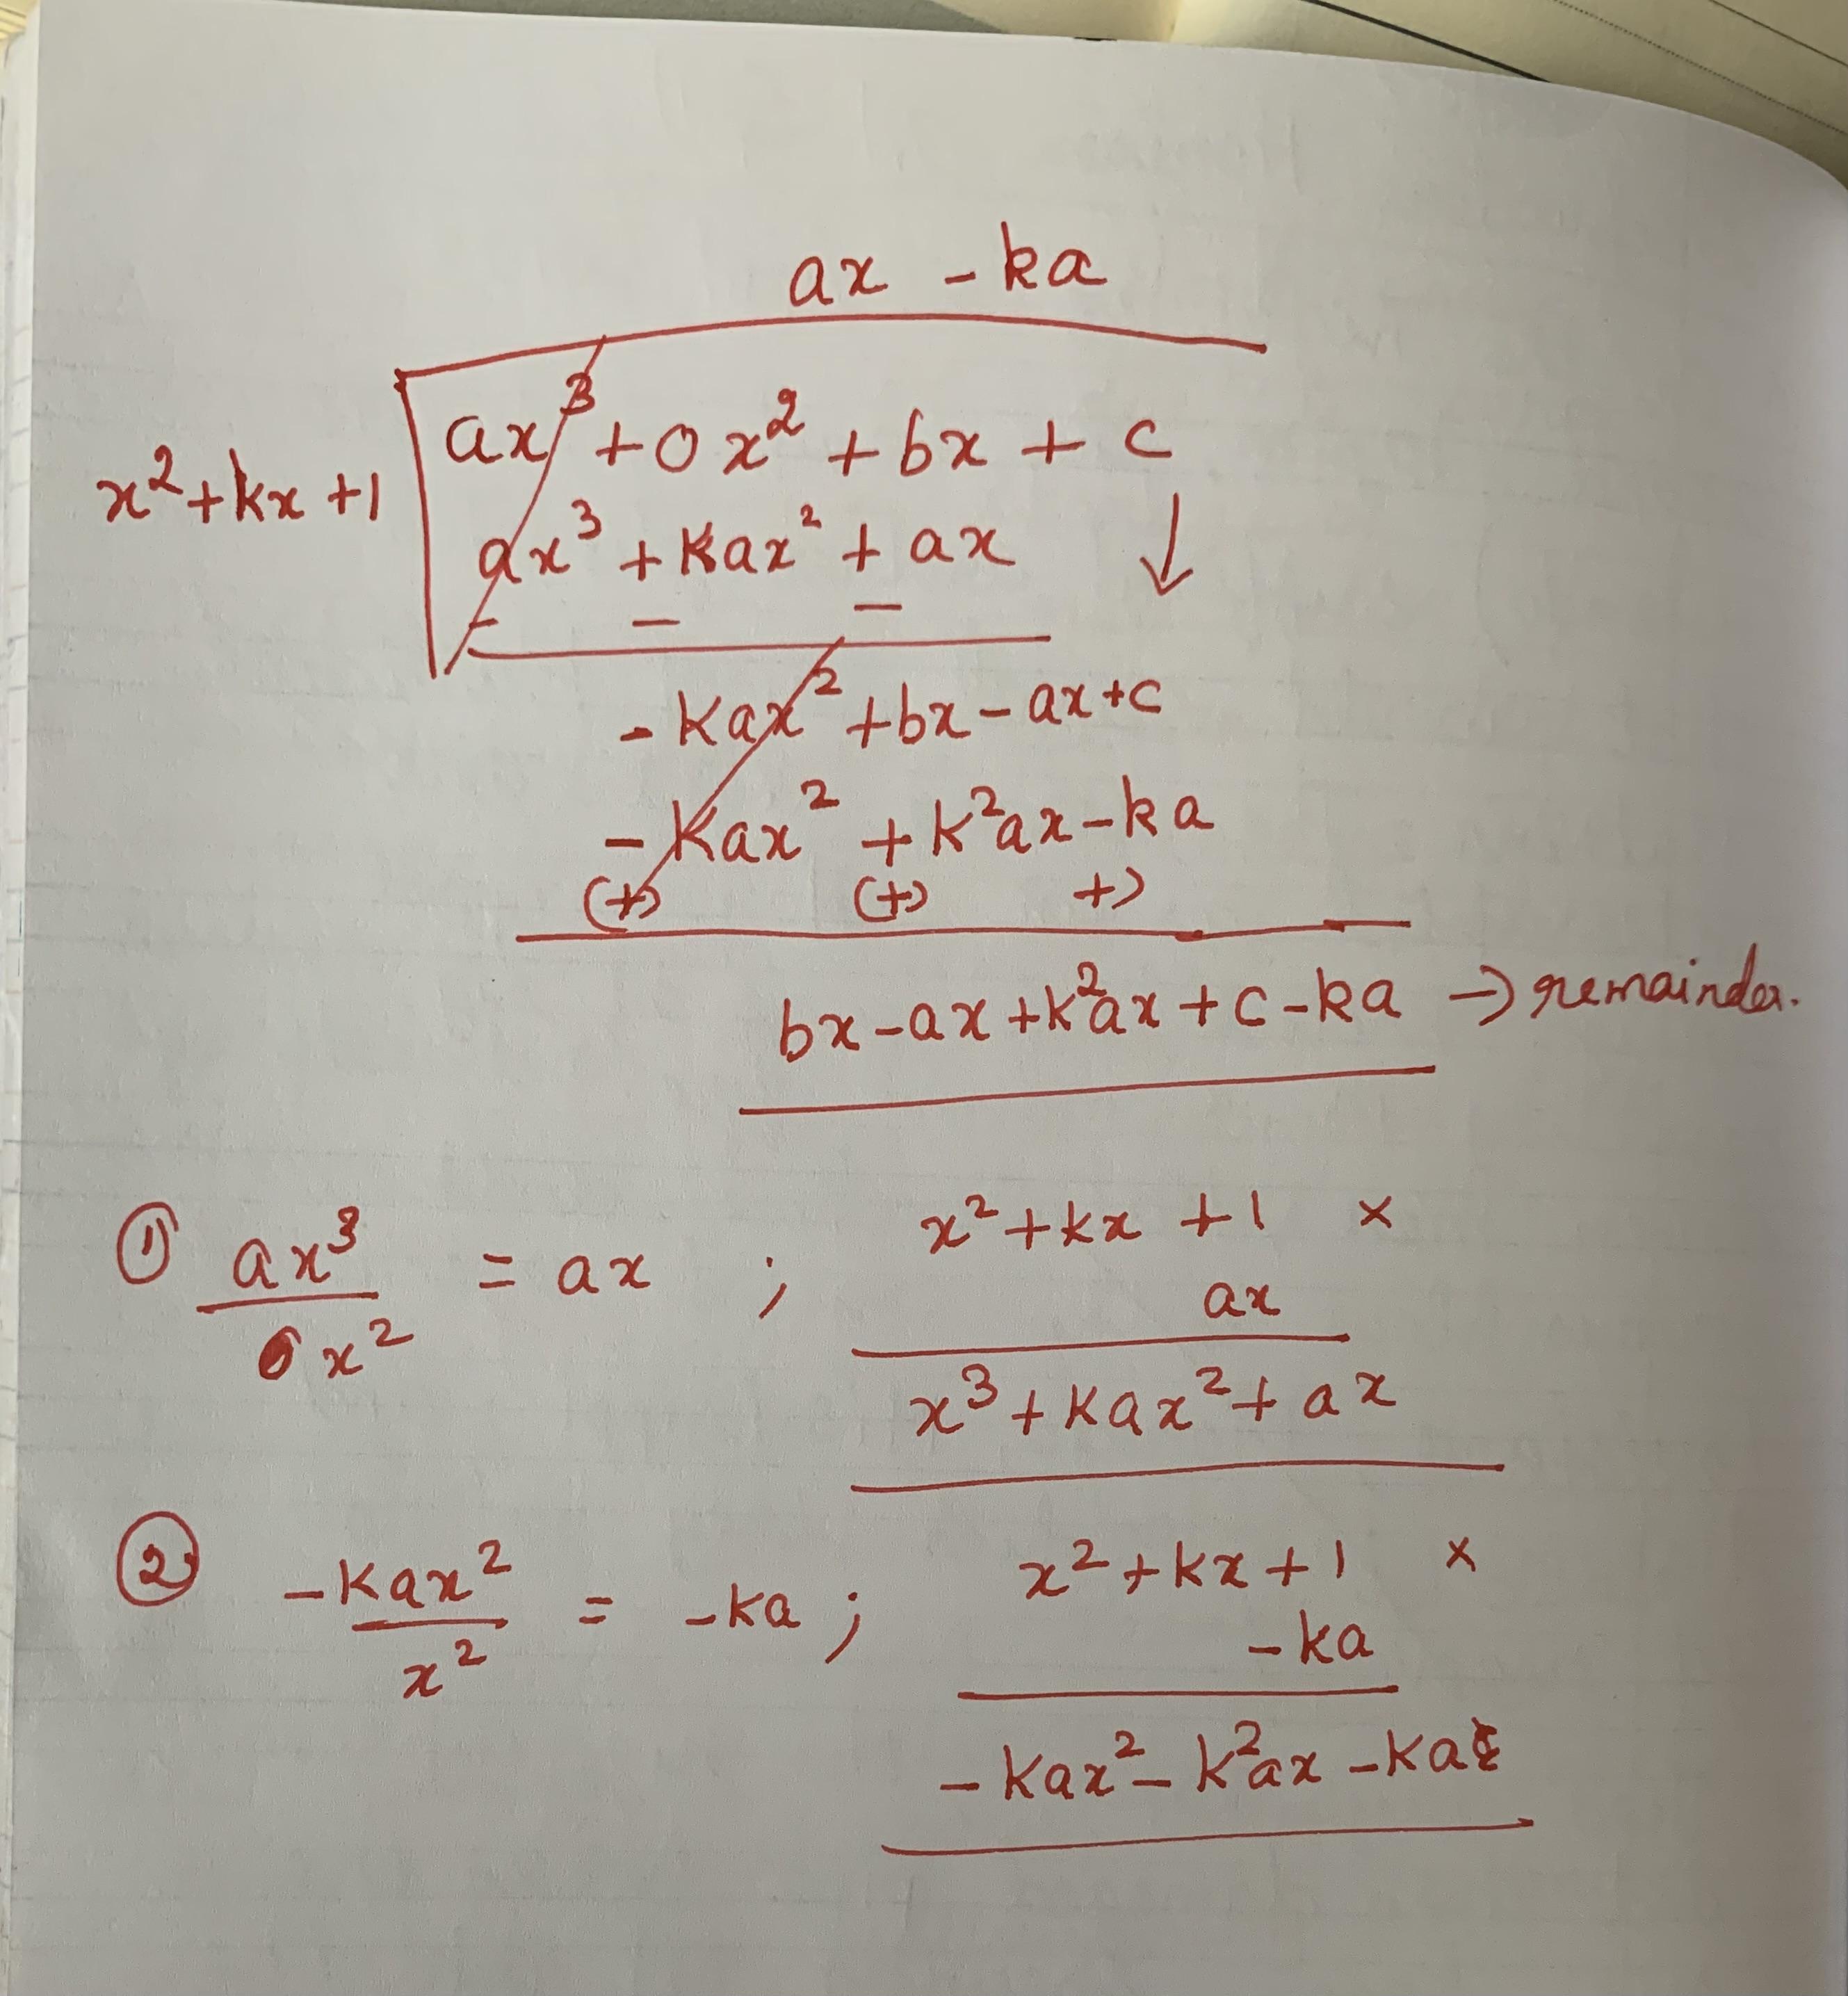 ax - ka
x²+kx+1 ax³ + 0x² + bx + c
ax³ + kax² + ax ↓
- - -
-kax² + bx - ax + c
-kax² + k²ax - ka
(+) (+) +)
bx - ax + k²ax + c - ka → remainder.
① ax³/x² = ax ; x² + kx + 1 ×
ax
x³ + kax² + ax
② -kax²/x² = -ka ; x² + kx + 1 ×
-ka
-kax² - k²ax - ka